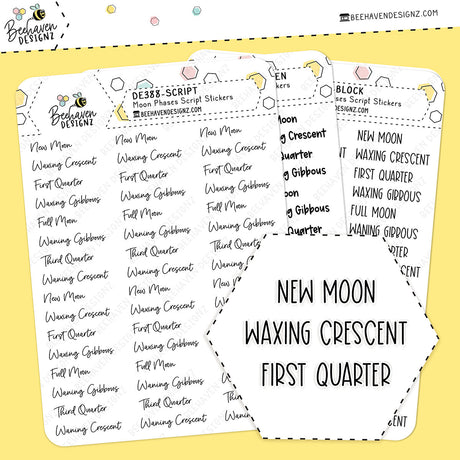 Beehaven
DESIGNZ
BEEHAVENDESIGNZ.COM
Beehaven
DESIGNZ
DE388-SCRIPT
Moon Phases Script Stickers
BEEHAVENDESIGNZ.COM
New Moon
Waxing Crescent
First Quarter
Waxing Gibbous
Full Moon
Waning Gibbous
Third Quarter
Waning Crescent
New Moon
Waxing Crescent
First Quarter
Waxing Gibbous
Full Moon
Waning Gibbous
Third Quarter
Waning Crescent
New Moon
Waxing Crescent
First Quarter
Waxing Gibbous
Full Moon
Waning Gibbous
Third Quarter
Waning Crescent
New Moon
Waxing Crescent
First Quarter
Waxing Gibbous
Full Moon
Waning Gibbous
Third Quarter
Waning Crescent
New Moon
Waxing Crescent
First Quarter
Waxing Gibbous
Full Moon
Waning Gibbous
Third Quarter
Script Stickers
DESIGNZ.COM
Crescent
Quarter
Gibbous
Moon
Gibbous
Quarter
BLOCK
Phases Script Stickers
DESIGNZ.COM
NEW MOON
WAXING CRESCENT
FIRST QUARTER
WAXING GIBBOUS
FULL MOON
WANING GIBBOUS
NEW MOON
WAXING CRESCENT
FIRST QUARTER